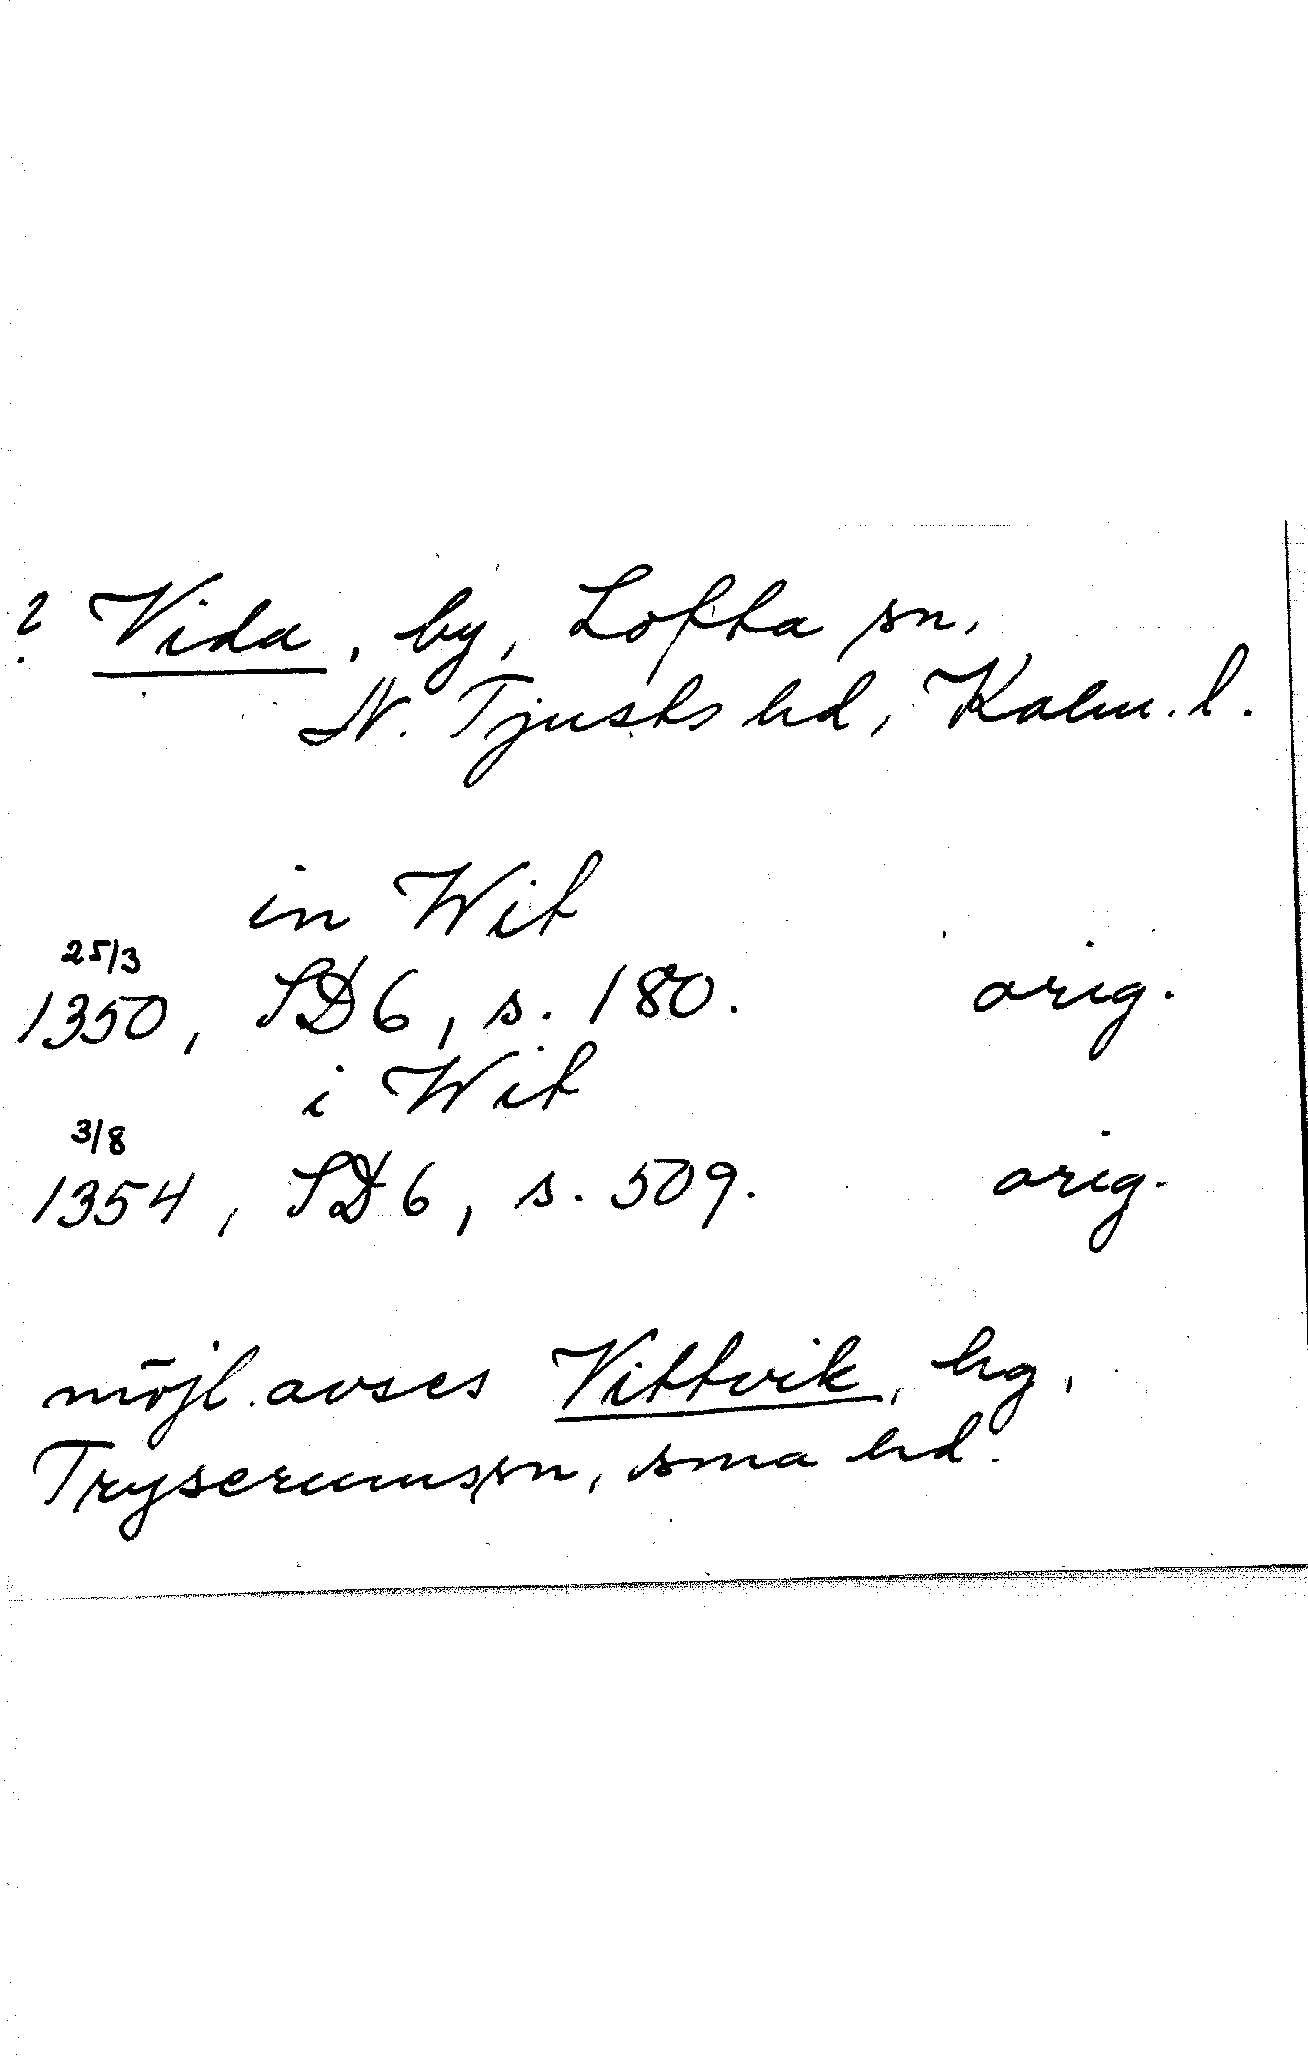 ? Vida, by, Lofta sn,
N. Tjusts hd, Kalm. l.
in Wit
25/3
1350, SD 6, s. 180. orig.
i Wit
3/8
1354, SD 6, s. 509. orig.
möjl. avses Vittvik, hg,
Tryserums sn, sma hd.